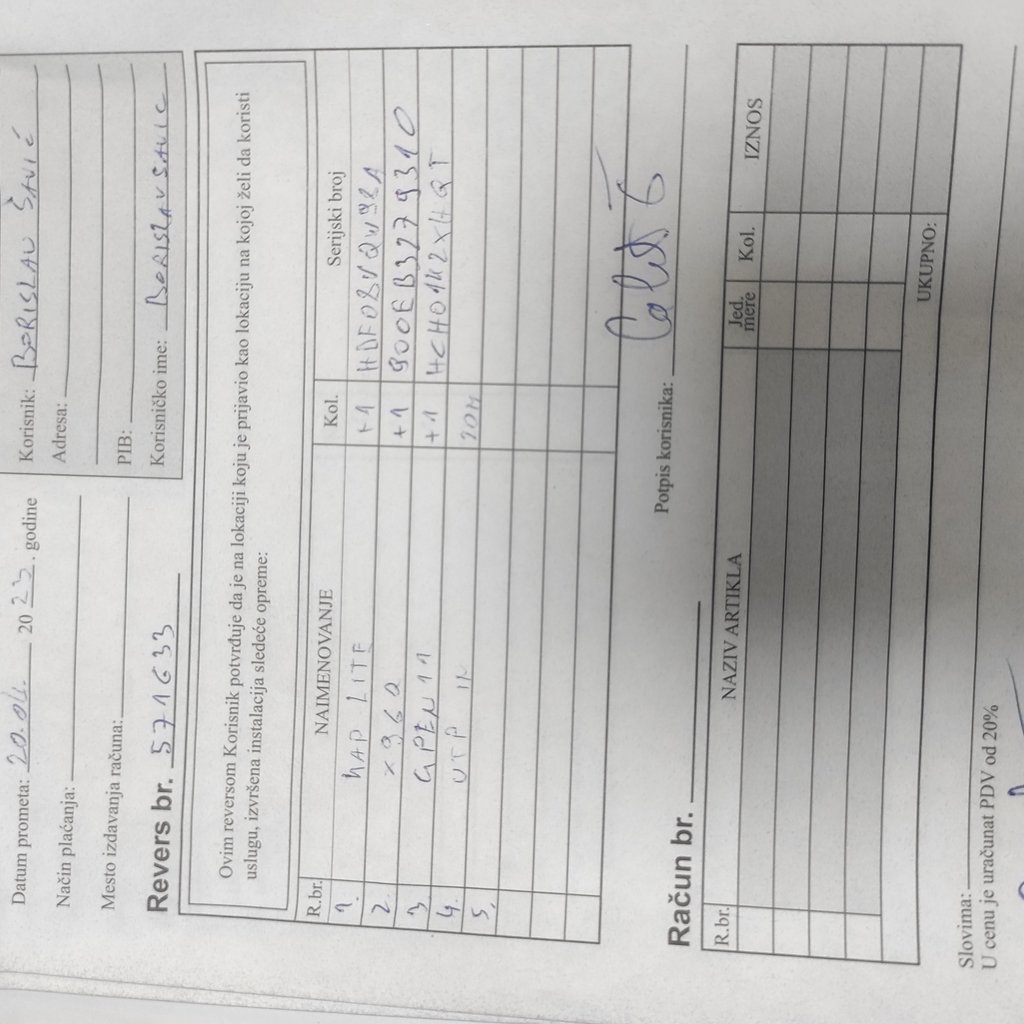 Datum prometa: 20.04. 2023. godine
Način plaćanja:
Mesto izdavanja računa:
Revers br. 571633
Korisnik: BORISLAV ŠAVIĆ
Adresa:
PIB:
Korisničko ime: BORISLAVSAVIC
Ovim reversom Korisnik potvrđuje da je na lokaciji koju je prijavio kao lokaciju na kojoj želi da koristi
uslugu, izvršena instalacija sledeće opreme:
R.br. NAIMENOVANJE Kol. Serijski broj
1. HAP LITE +1 HDF08VQW92A
2. X96Q +1 900EB3279310
3 GPEN11 +1 HCH01H2XHQT
4. UTP IN 20M
5.
Potpis korisnika:
Račun br.
R.br. NAZIV ARTIKLA Jed. mere Kol. IZNOS
UKUPNO:
Slovima:
U cenu je uračunat PDV od 20%